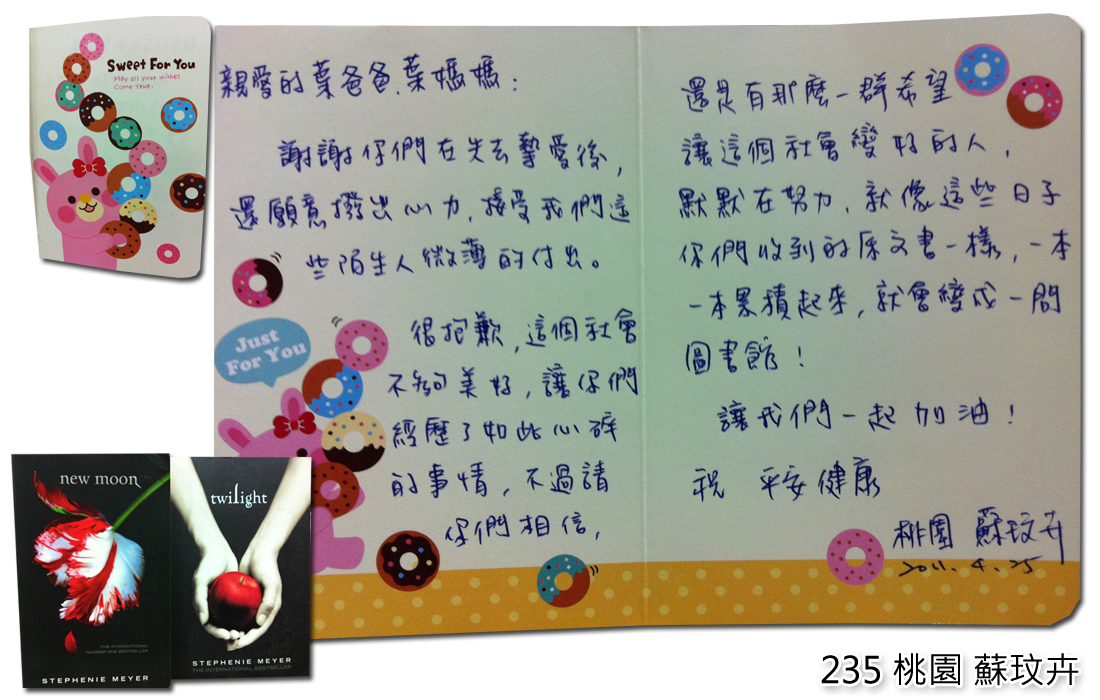 Sweet For You
May all your wishes
Come true.
親愛的葉爸爸、葉媽媽：
謝謝你們在失去摯愛後，
還願意撥出心力，接受我們這
些陌生人微薄的付出。
Just
For You
很抱歉，這個社會
不夠美好，讓你們
經歷了如此心碎
的事情，不過請
你們相信，
還是有那麼一群希望
讓這個社會變好的人，
默默在努力，就像這些日子
你們收到的原文書一樣，一本
一本累積起來，就會變成一間
圖書館！
讓我們一起加油！
祝 平安健康
桃園 蘇玟卉
2011.4.25
new moon
THE INTERNATIONAL
NUMBER ONE BESTSELLER
STEPHENIE MEYER
twilight
STEPHENIE MEYER
THE INTERNATIONAL BESTSELLER
235 桃園 蘇玟卉